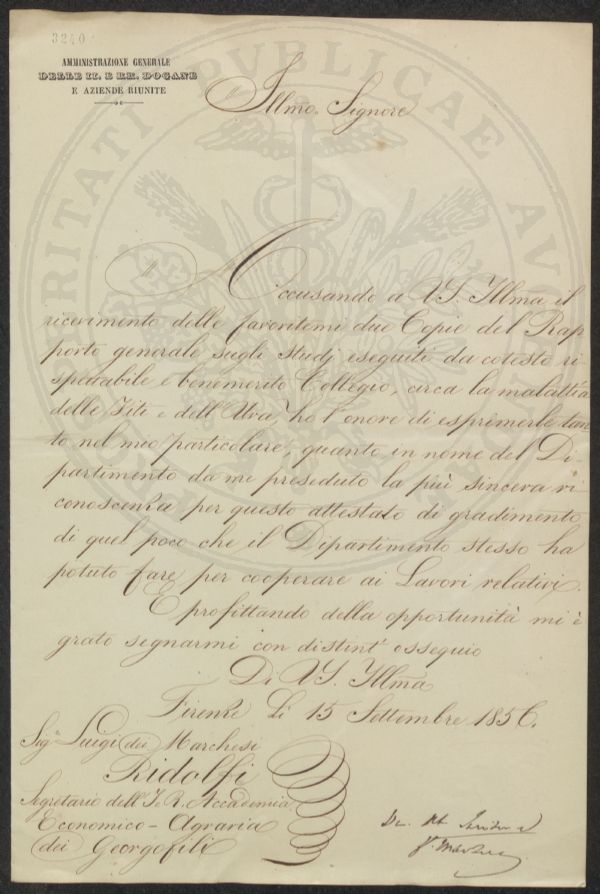 3240
AMMINISTRAZIONE GENERALE
DELLE II. E RR. DOGANE
E AZIENDE RIUNITE
Illmo. Signore
Accusando a VS. Illma il
ricevimento delle favoritemi due Copie del Rap
porto generale sugli Studj eseguiti da cotesto ri
spettabile e benemerito Collegio, circa la malattia
delle Viti e dell'Uva, ho l'onore di esprimerle tan
to nel mio particolare, quanto in nome del Di-
partimento da me preseduto la più sincera ri
conoscenza per questo attestato di gradimento
di quel poco che il Dipartimento stesso ha
potuto fare per cooperare ai Lavori relativi.
E profittando della opportunità mi è
grato segnarmi con distint° ossequio
Di VS. Illma
Firenze Li 15 Settembre 1856.
Sigr. Luigi dei Marchesi
Ridolfi
Segretario dell'I. e R. Accademia
Economico-Agraria
dei Georgofili